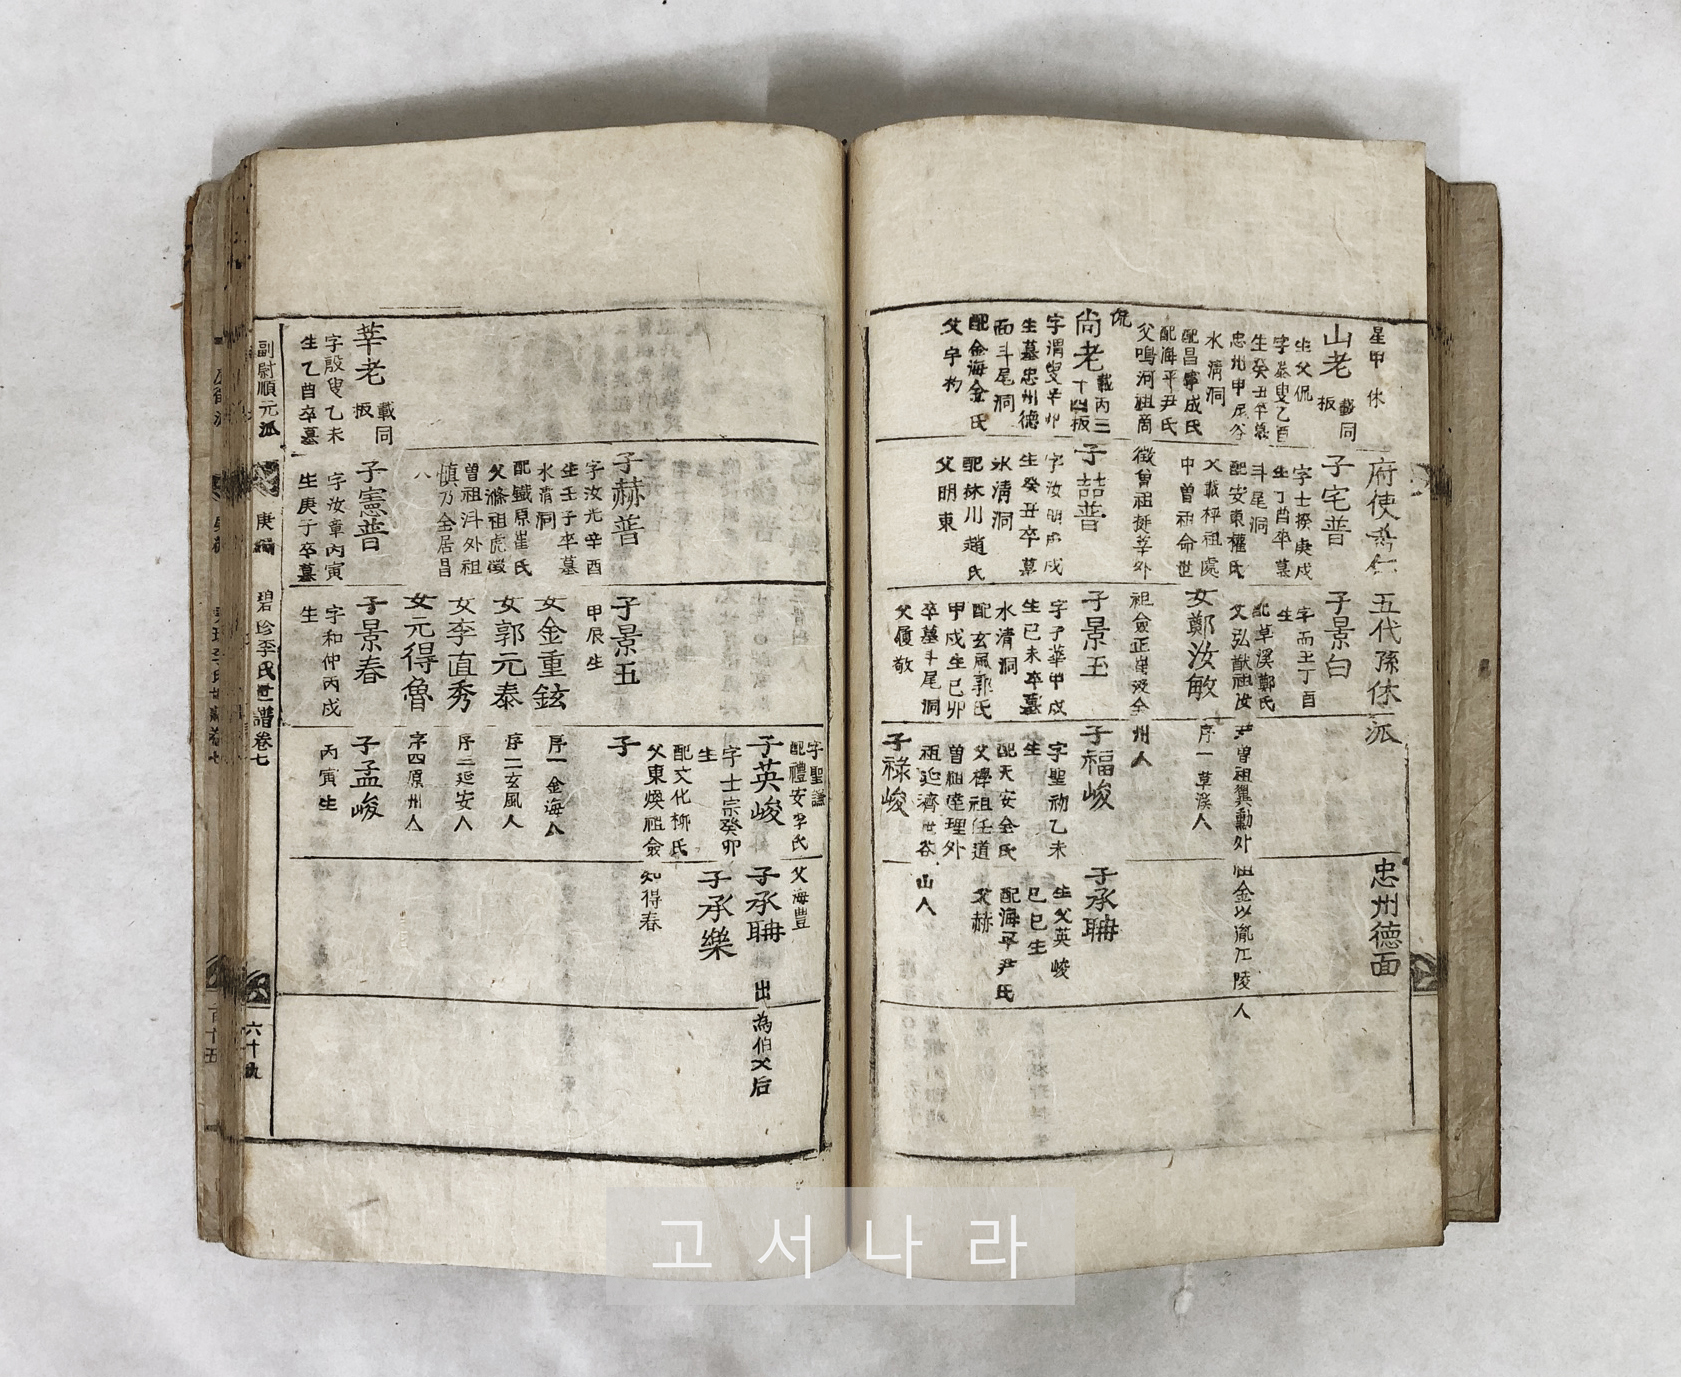 星州 休
府使孝仁
五代孫休派
忠州德面
山老 載同板
生父侃
字基叟乙酉
生癸丑卒墓
忠州甲尺谷
水淸洞
配昌寧成氏
配海平尹氏
父鳴河祖商
侃
尙老 載丙三十四板
字渭叟辛卯
生墓忠州德
面斗尾洞
配金海金氏
父宇杓
子宅普
字士揆庚戌
生丁酉卒墓
斗尾洞
配安東權氏
父載枰祖處
中曾祖命世
徵曾祖挺莘外
子喆普
字汝明甲戌
生癸丑卒墓
水淸洞
配林川趙氏
父明東
子景白
字而玉丁酉
生
配草溪鄭氏
父弘猷祖汝
女鄭汝敏
子景玉
字子華甲戌
生己未卒墓
水淸洞
配玄風郭氏
甲戌生己卯
卒墓斗尾洞
父履敬
尹曾祖龍勳外
序一 草溪人
州人
子福峻
字聖初乙未
生
配天安全氏
父檡祖任道
曾祖達理外
祖延濟世谷
子祿峻
祖金以胤江陵人
子承聃
生父英峻
己巳生
配海平尹氏
父赫
山人
字聖謙
配禮安李氏
子英峻
字士宗癸卯
生
配文化柳氏
父東煥祖僉
父海豊
子承聃 出為伯父后
子承樂
知得春
子赫普
字汝光辛酉
生壬子卒墓
水淸洞
配鐵原崔氏
父滌祖虎徵
曾祖沔外祖
愼乃全居昌
人
子景五
甲辰生
女金重鉉
女郭元泰
女李直秀
女元得魯
子
序一 金海人
序二玄風人
序三延安人
序四原州人
莘老 載同板
字殷叟乙未
生乙酉卒墓
子憲普
字汝章丙寅
生庚子卒墓
子景春
字和仲丙戌
生
子孟峻
丙寅生
副尉順元派
庚編
碧珍李氏世譜卷七
六十九
고서나라